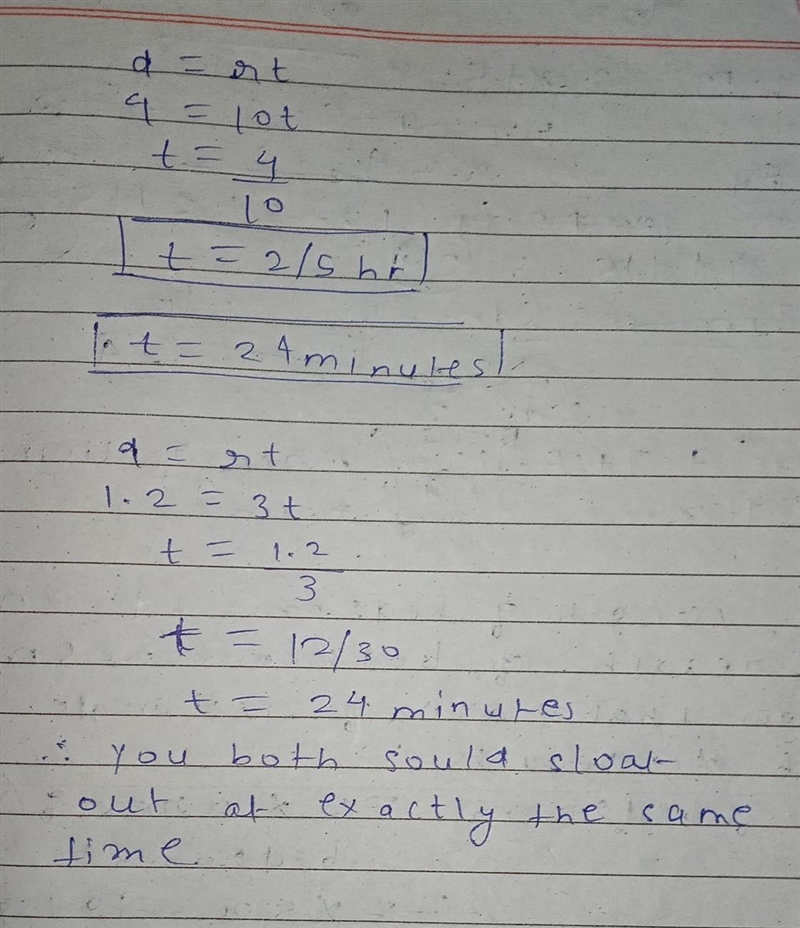 d = rt
4 = 10t
t = 4/10
t = 2/5 hr
t = 24 minutes
d = rt
1.2 = 3t
t = 1.2/3
t = 12/30
t = 24 minutes
∴ you both sould sloat
out at exactly the same
time